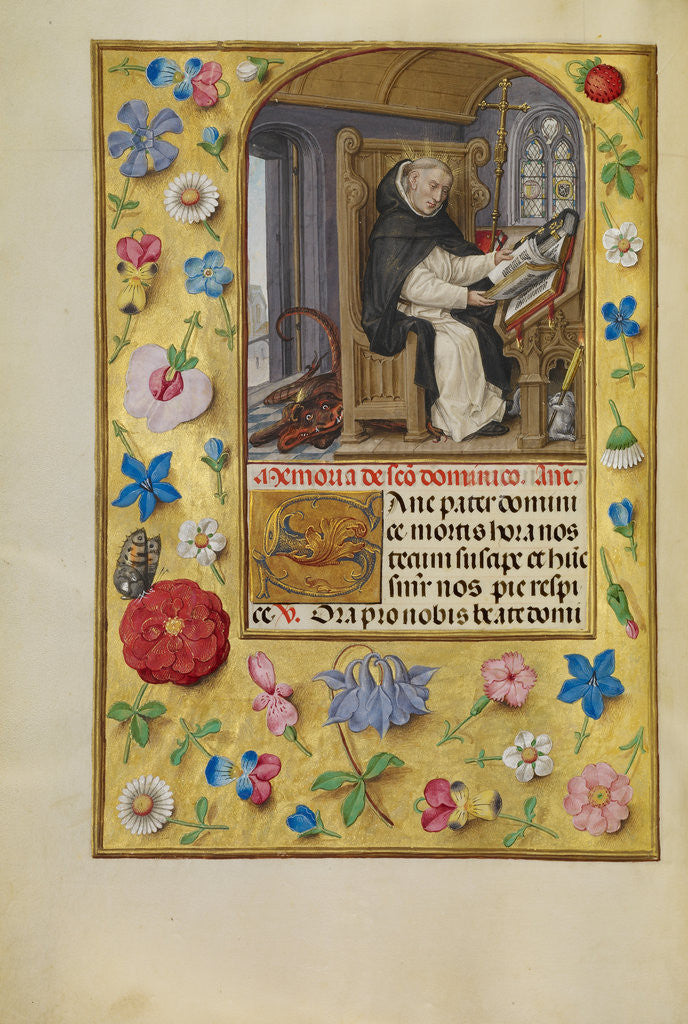 Memoria de scō dominico. Ant.
Anc pater domini
ce mortis hora nos
tecum suscipe et hīc
smr̄ nos pie respi
ce. V. Ora pro nobis beate domi